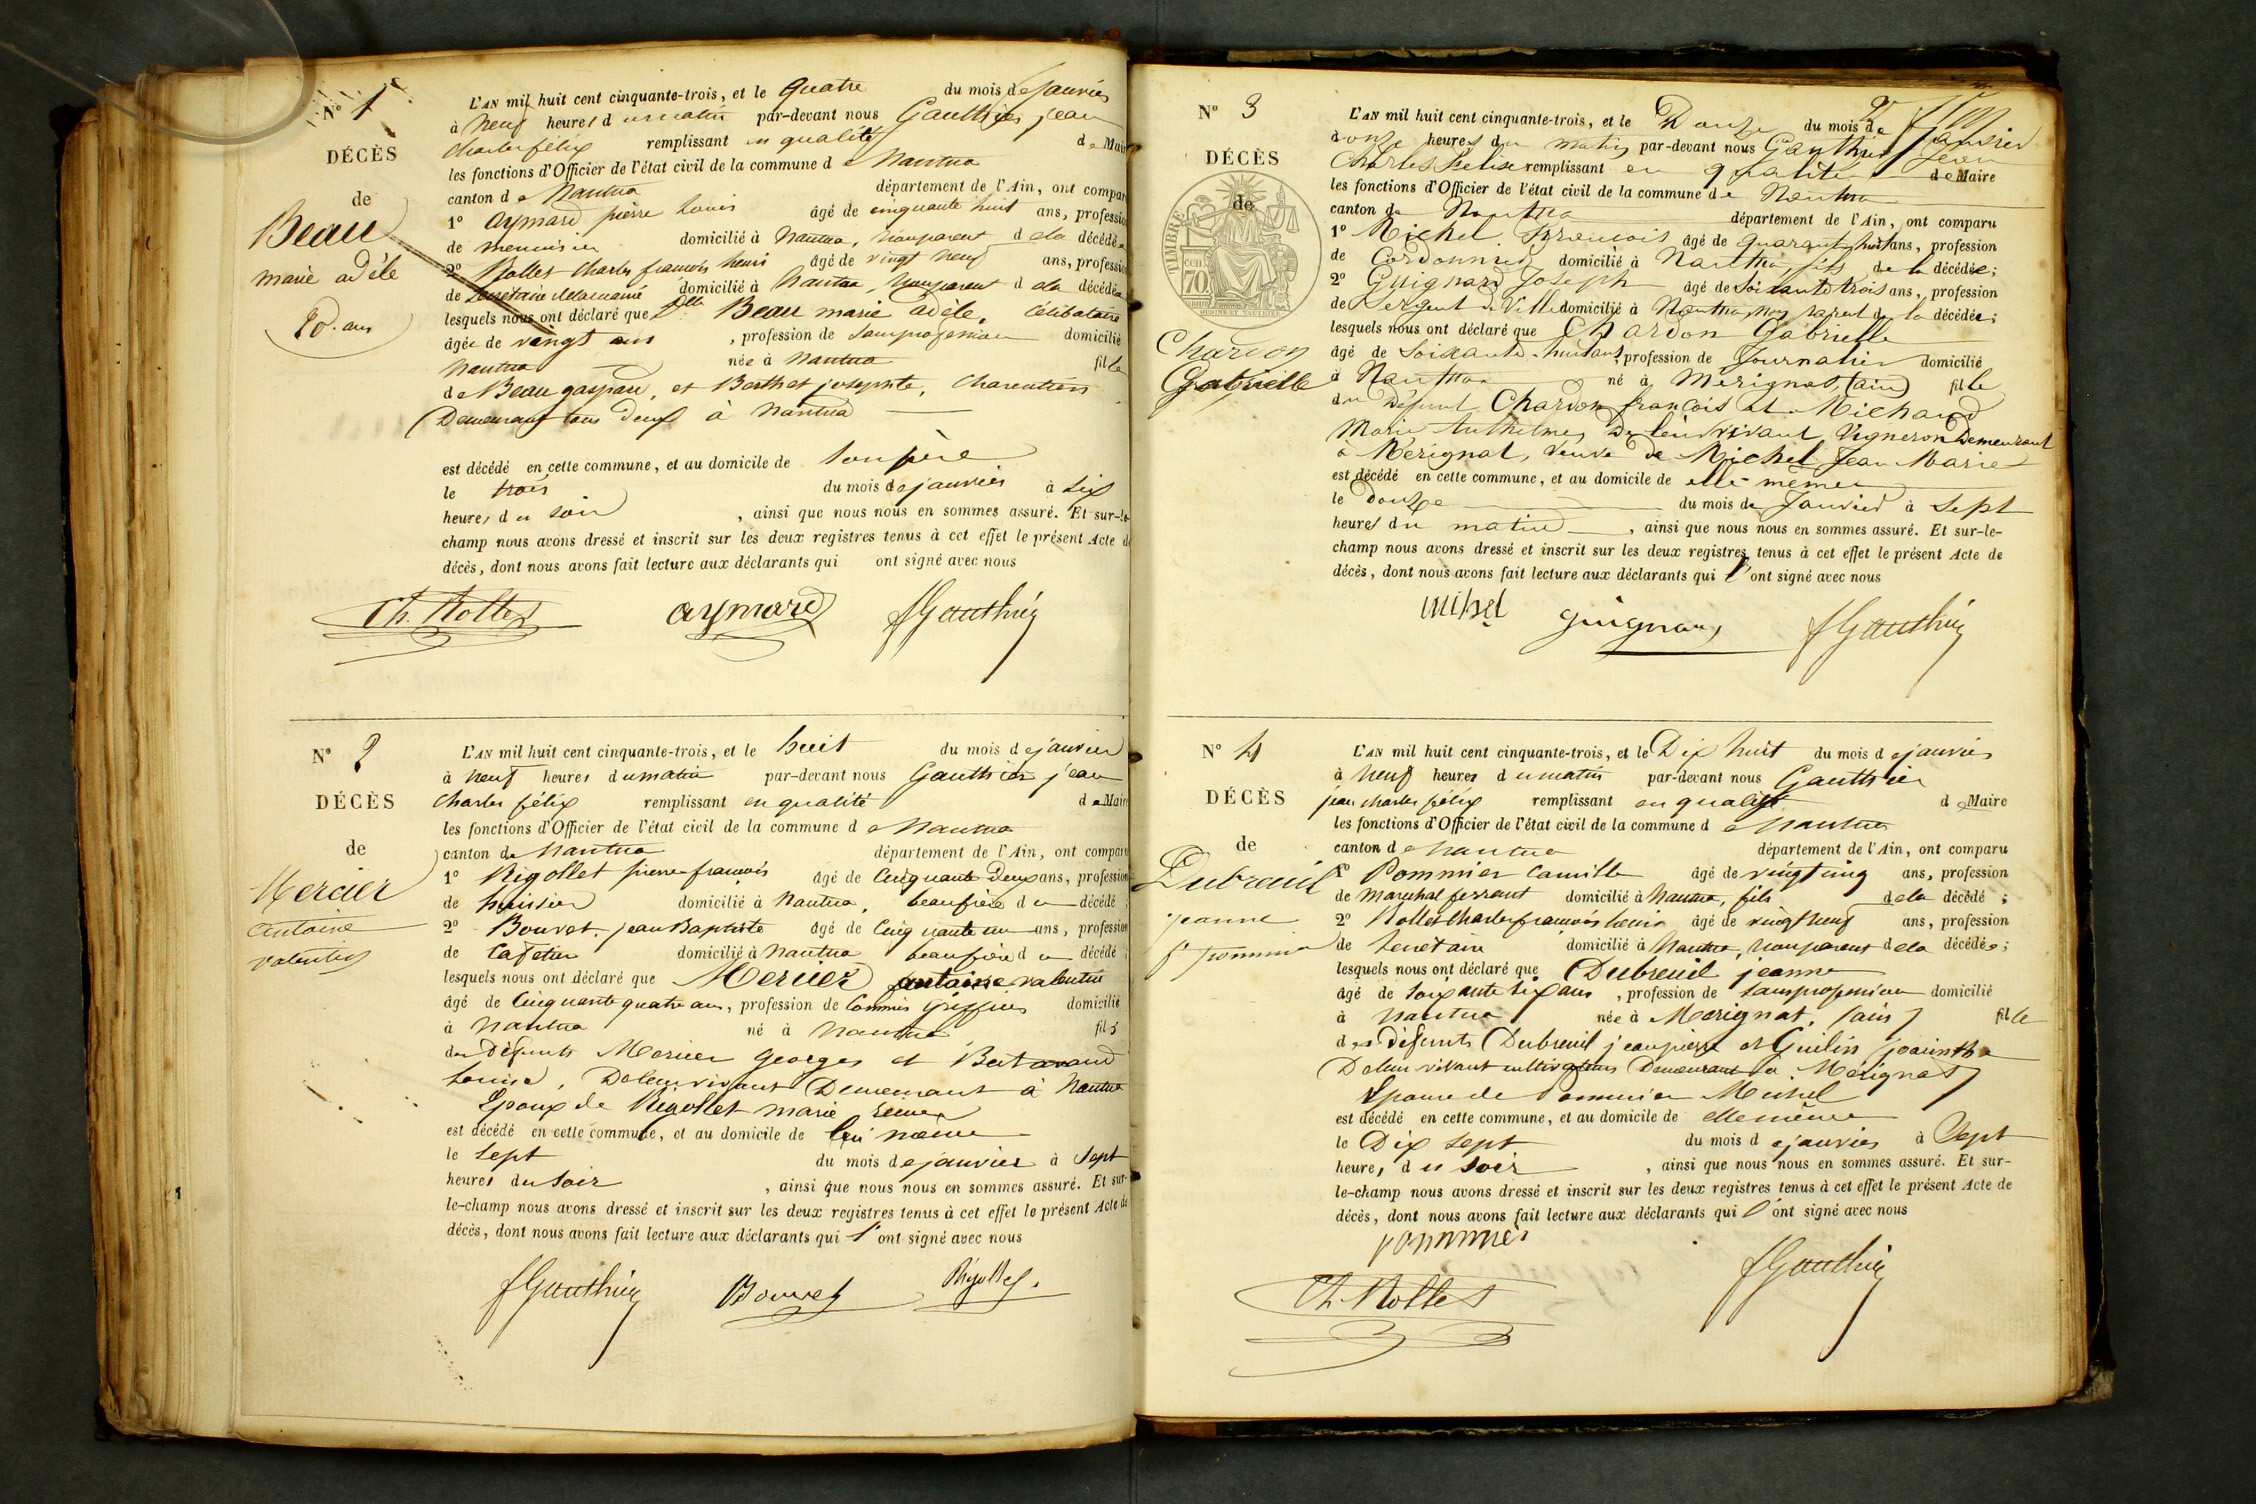 N° 1
DÉCÈS
de
Beau
marie adèle
20 ans
L'AN mil huit cent cinquante-trois, et le quatre du mois de janvier
à neuf heures du matin par-devant nous Gauthier jean
charles félix remplissant en qualité de Maire
les fonctions d'Officier de l'état civil de la commune de Nantua
canton de Nantua département de l'Ain, ont comparu
1° aymard pierre louis âgé de cinquante huit ans, profession
de menuisier domicilié à Nantua, non parent de la décédée
2° Rollet charles françois henri âgé de vingt neuf ans, profession
de Secrétaire de la mairie domicilié à Nantua, non parent de la décédée
lesquels nous ont déclaré que Dlle Beau marie adèle, célibataire
âgée de vingt ans, profession de sans profession domicilié
Nantua née à Nantua fille
de Beau gaspard, et Berthet josephte, charcutiers
Demeurant tous deux à Nantua
est décédé en cette commune, et au domicile de son père
le trois du mois de janvier à six
heures du soir, ainsi que nous nous en sommes assuré. Et sur-le-
champ nous avons dressé et inscrit sur les deux registres tenus à cet effet le présent Acte de
décès, dont nous avons fait lecture aux déclarants qui ont signé avec nous
Ch. Rollet aymard fGauthier
N° 2
DÉCÈS
de
Mercier
antoine
valentin
L'AN mil huit cent cinquante-trois, et le huit du mois de janvier
à neuf heures du matin par-devant nous Gauthier jean
charles félix remplissant en qualité de Maire
les fonctions d'Officier de l'état civil de la commune de Nantua
canton de Nantua département de l'Ain, ont comparu
1° Rigollet pierre françois âgé de Cinquante Deux ans, profession
de huissier domicilié à Nantua, beaufrère du décédé;
2° Bouvet jean Baptiste âgé de Cinquante un ans, profession
de Cafetier domicilié à Nantua beaufrère du décédé;
lesquels nous ont déclaré que Mercier antoine valentin
âgé de Cinquante quatre ans, profession de Commis greffier domicilié
à Nantua né à Nantua fils
des Défunts Mercier georges et
Louise, De leur vivant Demeurant à Nantua
Epoux de Rigollet marie
est décédé en cette commune, et au domicile de lui même
le Sept du mois de janvier à Sept
heures du soir, ainsi que nous nous en sommes assuré. Et sur-
le-champ nous avons dressé et inscrit sur les deux registres tenus à cet effet le présent Acte de
décès, dont nous avons fait lecture aux déclarants qui l'ont signé avec nous
fGauthier Bouvet Rigollet.
N° 3
DÉCÈS
de
TIMBRE
70
Chardon
Gabrielle
L'AN mil huit cent cinquante-trois, et le Douze du mois de Janvier
à onze heures du matin par-devant nous Gauthier Jean
Charles Félix remplissant en qualité de Maire
les fonctions d'Officier de l'état civil de la commune de Nantua
canton de Nantua département de l'Ain, ont comparu
1° Michel François âgé de quarante huit ans, profession
de Cordonnier domicilié à Nantua, fils de la décédée;
2° Guignard Joseph âgé de Soixante trois ans, profession
de Sergent de Ville domicilié à Nantua, non parent de la décédée;
lesquels nous ont déclaré que Chardon Gabrielle
âgé de Soixante-huit ans, profession de Journalier domicilié
à Nantua né à Mérignat, (ain) fille
du Défunt Chardon françois et Michaud
Marie Anthelme, De leur vivant Vigneron Demeurant
à Mérignat, veuve de Michel Jean Marie
est décédé en cette commune, et au domicile de elle-même
le Douze du mois de Janvier à Sept
heures du matin, ainsi que nous nous en sommes assuré. Et sur-le-
champ nous avons dressé et inscrit sur les deux registres tenus à cet effet le présent Acte de
décès, dont nous avons fait lecture aux déclarants qui l'ont signé avec nous
michel guignard fGauthier
N° 4
DÉCÈS
de
Dubreuil
jeanne
f Pommier
L'AN mil huit cent cinquante-trois, et le Dix huit du mois de janvier
à neuf heures du matin par-devant nous Gauthier
jean charles félix remplissant en qualité de Maire
les fonctions d'Officier de l'état civil de la commune de Nantua
canton de Nantua département de l'Ain, ont comparu
1° Pommier Camille âgé de vingt cinq ans, profession
de marechal ferrant domicilié à Nantua, fils de la décédé;
2° Rollet Charles françois henri âgé de vingt neuf ans, profession
de Secretaire domicilié à Nantua, non parent de la décédée;
lesquels nous ont déclaré que Dubreuil jeanne
âgé de soixante six ans, profession de sans profession domicilié
à Nantua née à Merignat, (ain) fille
des défunts Dubreuil jean pierre et Guilin jacinthe
De leur vivant cultivateurs Demeurant à Merignat
Epouse de Pommier Michel
est décédé en cette commune, et au domicile de elle même
le Dix Sept du mois de janvier à Sept
heures du soir, ainsi que nous nous en sommes assuré. Et sur-
le-champ nous avons dressé et inscrit sur les deux registres tenus à cet effet le présent Acte de
décès, dont nous avons fait lecture aux déclarants qui l'ont signé avec nous
pommier
Ch. Rollet fGauthier